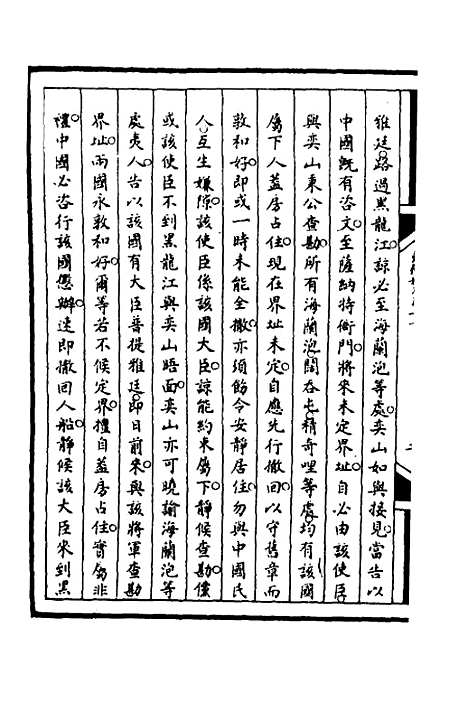 雅廷路過黑龍江諒必至海蘭泡等處奕山如與接見當告以
中國既有咨文至薩納特衙門將來未定界址自必由該使臣
與奕山秉公查勘所有海蘭泡闊吞屯精奇哩等處均有該國
屬下人蓋房占住現在界址未定自應先行撤回以守舊章而
敦和好即或一時未能全撤亦須飭令安靜居住勿與中國民
人互生嫌隙該使臣係該國大臣諒能約束屬下靜候查勘儻
或該使臣不到黑龍江與奕山晤面奕山亦可曉諭海蘭泡等
處夷人告以該國有大臣菩提雅廷即日前來與該將軍查勘
界址兩國永敦和好爾等若不候定界擅自蓋房占住實屬非
禮中國必咨行該國懲辦速即撤回人船靜候該大臣來到黑